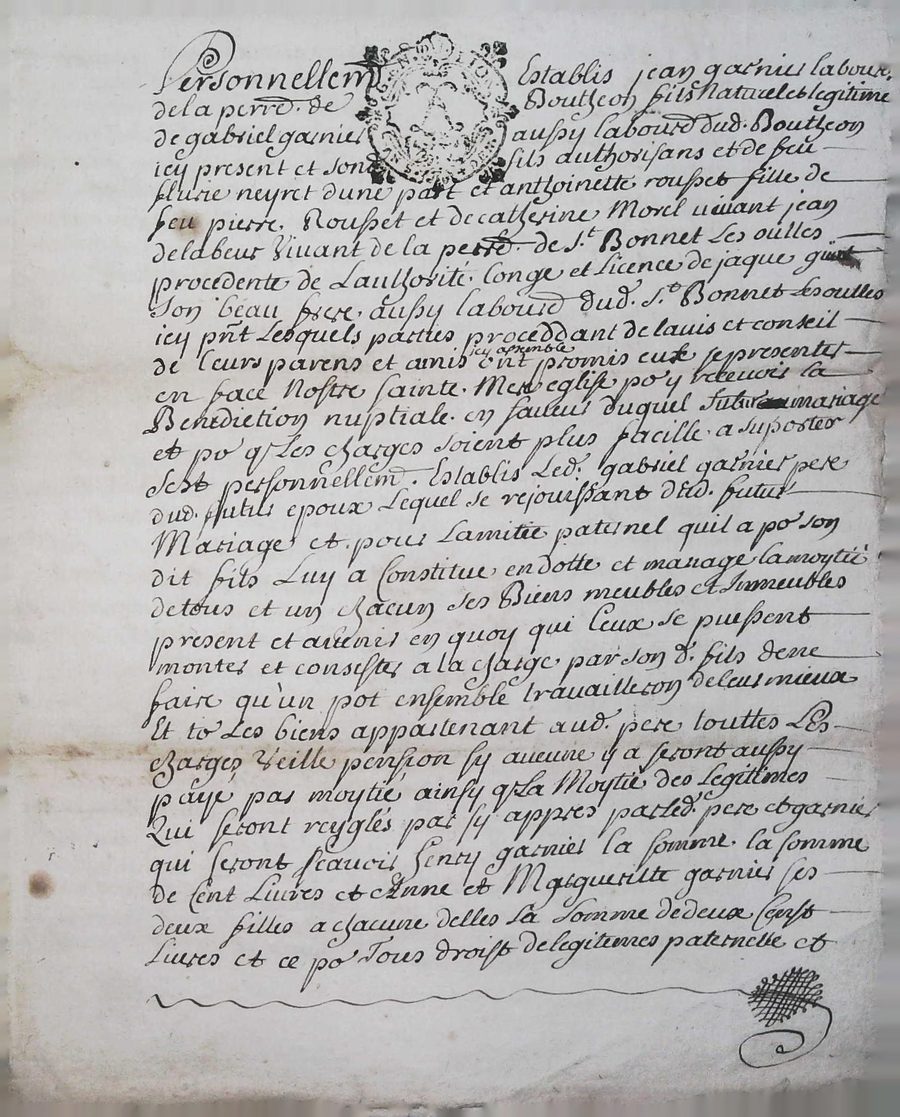 Personnellemt Establis jean garnier labour.
de la perrd. de Boutheon fils Naturel et legitime
de gabriel garnier aussy labourd dud. Boutheon
icy present et sond fils authorisans et de feu
fleurie neyret dune part et anthoinette rousset fille de
feu pierre. Rousset et de catherine Morel vivant jean
delabeur Vivant de la perrd. de St Bonnet Les oulles
procedente de Lauthorité Conge et Licence de jaque
son beau frere aussy labourd dud. St. Bonnet Les oulles
icy pnt Lesquels parties proceddant de lavis et conseil
de leurs parens et amis icy assemble ont promis eux se presenter
en face Nostre sainte Mere eglise po y recevoir la
Benediction nuptiale. en faveur duquel futur mariage
et po qe Les charges soient plus facille a suporter
sest personnellemt. Establis Led. gabriel garnier pere
dud. futur epoux Lequel se rejouissant dud. futur
Mariage et pour Lamitie paternel quil a po son
dit fils Luy a Constitue en dotte et mariage la moytié
de tous et un chacun ses Biens meubles et Immeubles
present et avenir en quoy qui Ceux se puissent
monter et consister a la charge par son d. fils dene
faire qu'un pot ensemble travailleron de leur mieux
Et to Les biens appartenant aud. pere touttes Les
charges Veille pension sy aucune y a seront aussy
payé par moytié ainsy qe La Moytié des Legitimes
Qui seront reyglés par sy appres par Led. pere et garnier
qui seront scavoir henry garnier la somme. la somme
de Cent Livres et Anne et Margueritte garnier ses
deux filles a chacune delles La somme de deux Censt
Livres et ce po Tous droist de legitimes paternelle et